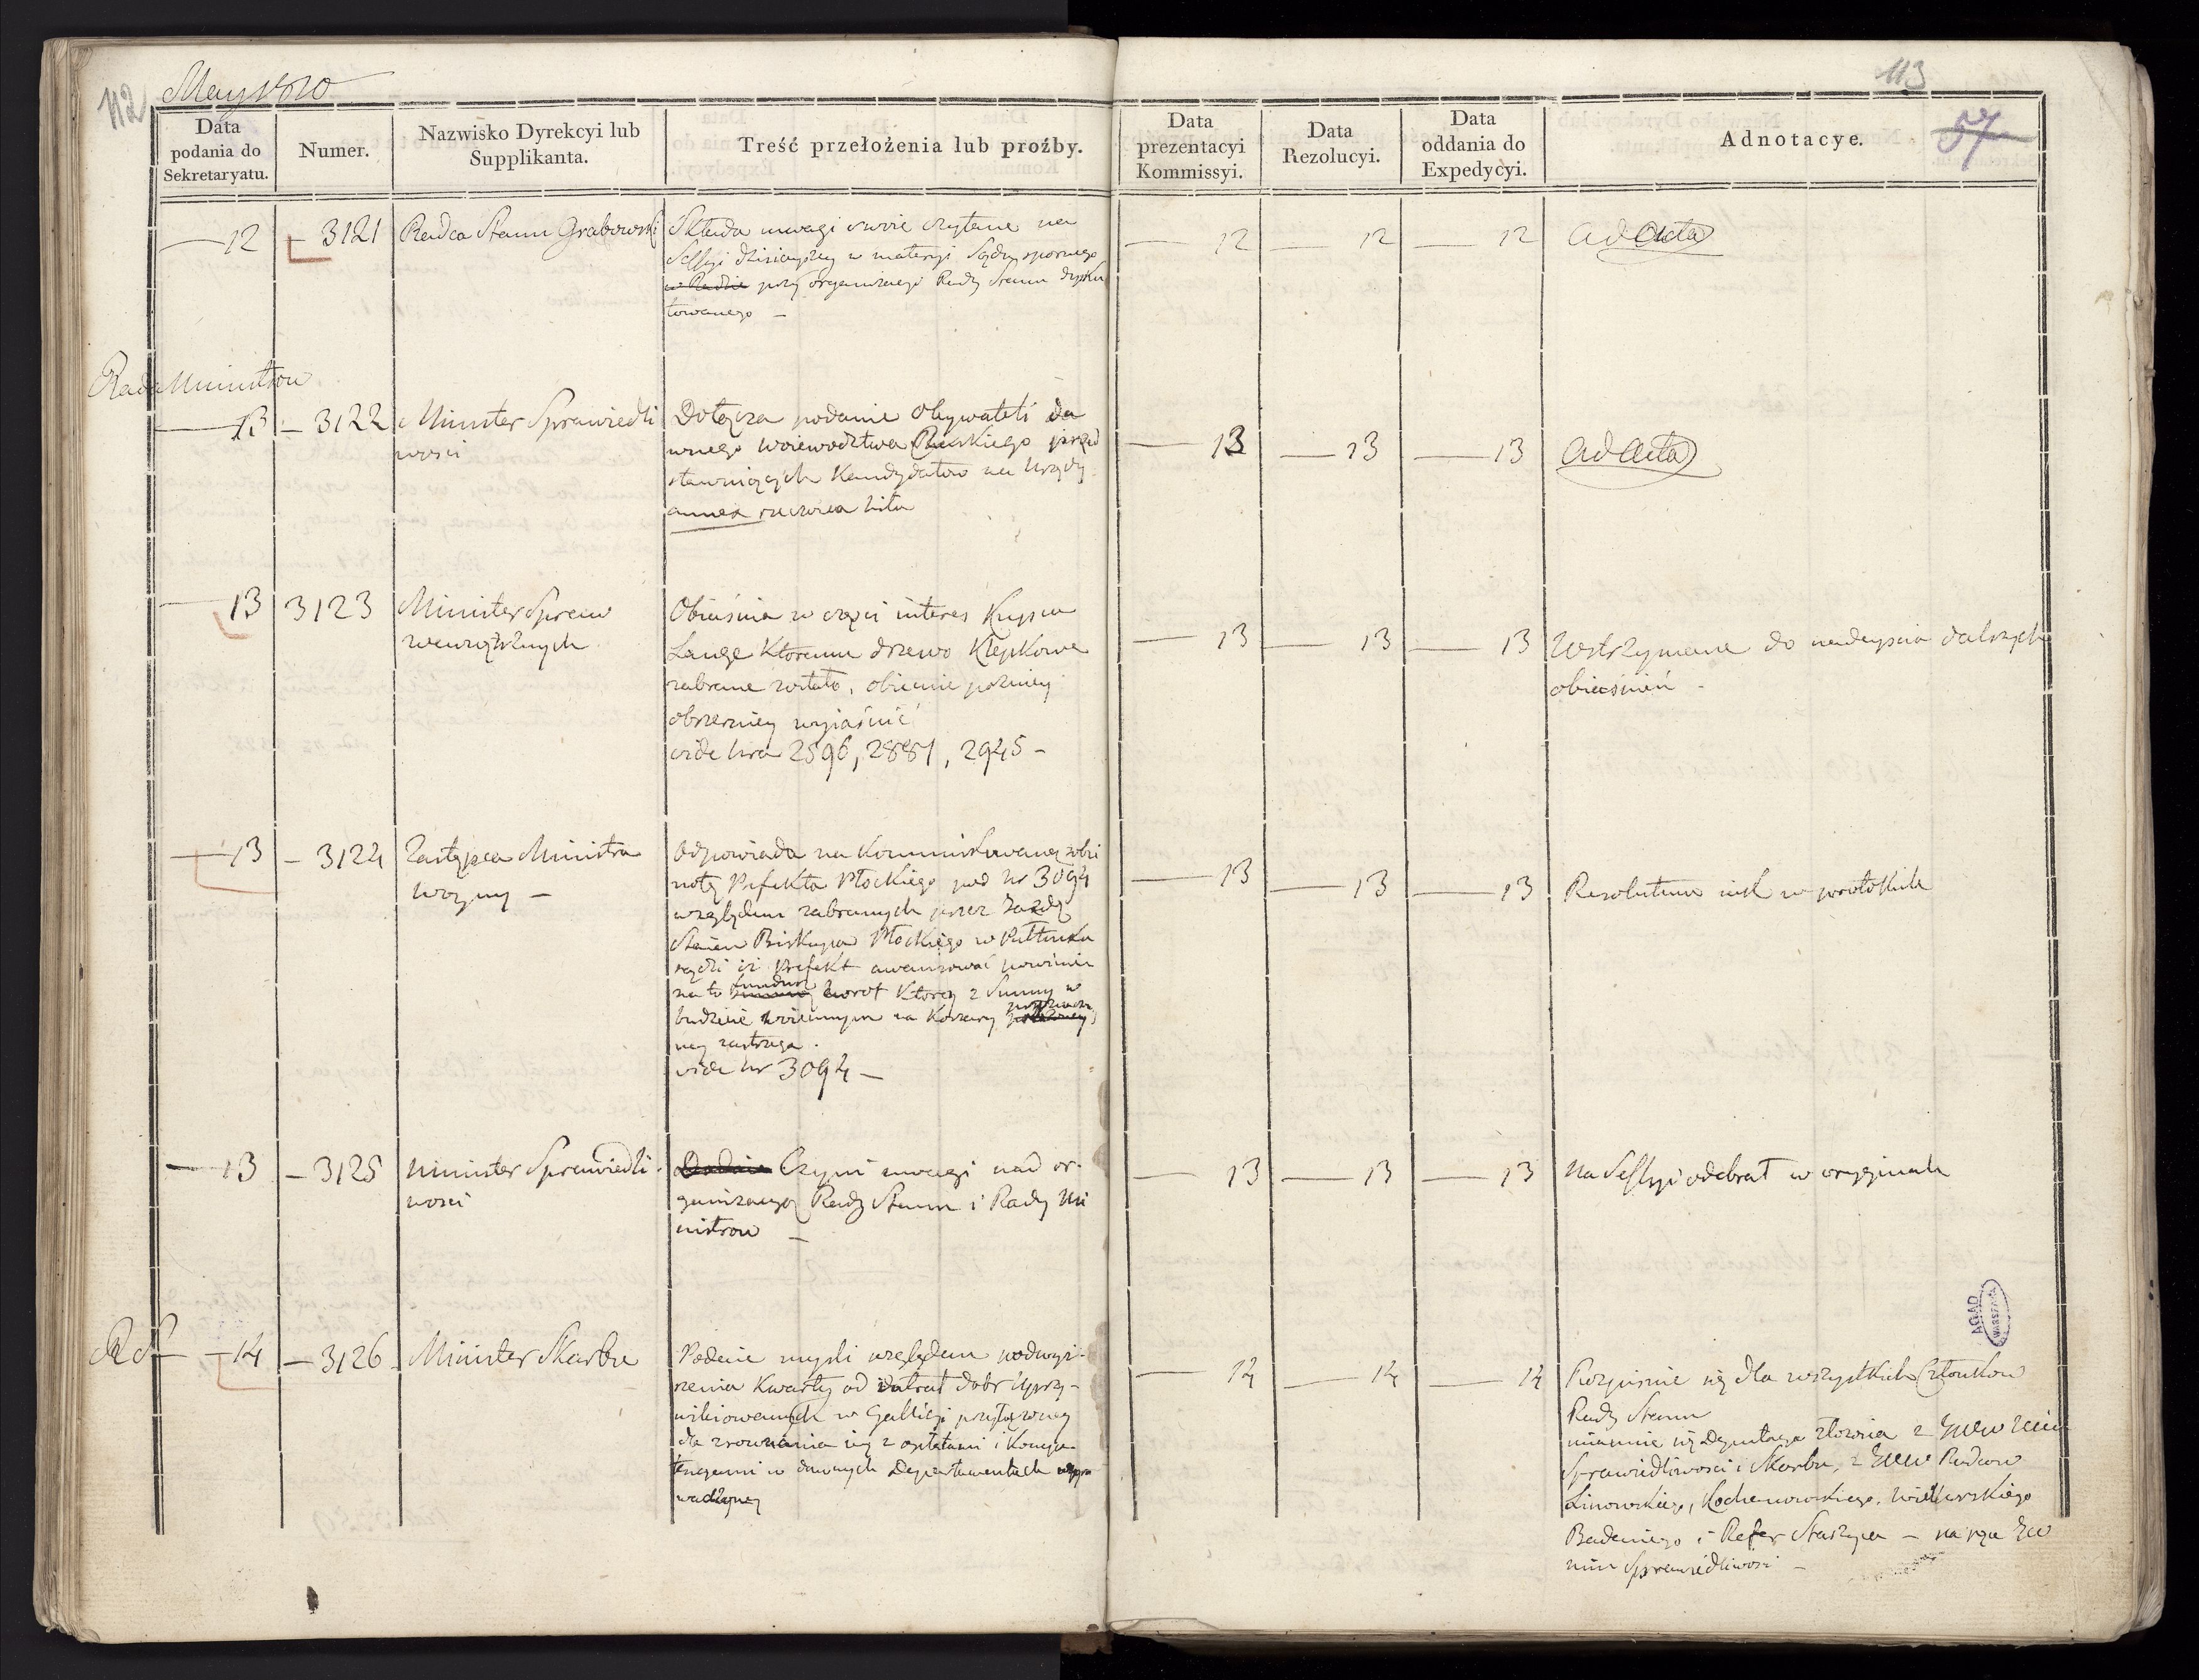 112
May 1810
113
57
Data podania do Sekretaryatu.
Numer.
Nazwisko Dyrekcyi lub Supplikanta.
Treść przełożenia lub proźby.
Data prezentacyi Kommissyi.
Data Rezolucyi.
Data oddania do Expedycyi.
Adnotacye.
12 — 3121
Radca Stanu Grabowski
Składa uwagi swoie czytane na
Sessyi dzisieyszey w materyi Sądu spornego
w Radzie przy organizacyi Rady Stanu dysku
towanego —
12 — 12 — 12
ad acta
Rada Ministrow
13 — 3122
Minister Sprawiedli
wosci
Dołącza podanie Obywateli da
wnego Woiewodztwa Ruskiego przed
stawuiących Kandydatow na Urzędy
annexa
13 — 13 — 13
ad acta
13 3123
Minister Spraw
wewnętrznych
Obiaśnia w części interes Krysia
Lange Ktoremu drzewo Klepkowe
zabrane zostało, obiecuie pozniey
obszerniey wyiaśnić
vide Nra 2596, 2881, 2945 —
13 — 13 — 13
Wstrzymane do nadeyscia dalszych
obiaśnień —
13 — 3124
Zastępca Ministra
Woyny —
Odpowiada na Kommunikowaną sobie
notę Prefekta Płockiego pod Nr 3094
względem zabranych przez
Staien Biskupa Płockiego w Pułtusku
sądzi iż Prefekt awansować powinien
na to fundusz zwrot Ktorey z Summy w
budżecie woiennym na Koszary
ney zastrzega.
vide Nr 3094 —
13 — 13 — 13
Resolutum iak w protokule
13 — 3125
Minister Sprawiedli
wosci
Czyni uwagi nad or-
ganizacyą Rady Stanu i Rady Mi
nistrow —
13 — 13 — 13
Na Sessyi odebrał w oryginale
R S
14 — 3126
Minister Skarbu
Podaie mysli względem podwyż-
szenia Kwarty od intrat dobr uprzy-
wileiowanych w Gallicyi przyłączoney
dla zrownania się z opłatami i Kompe
tencyami w dawnych Departamentach wypro
wadzoney
14 — 14 — 14
Rozpisanie się dla wszystkich Członkow
Rady Stanu
mianuie się Deputacya złożona z JWW Min
Sprawiedliwosci i Skarbu, z JWW Radcow
Linowskiego, Kochanowskiego, Wielhorskiego
Badeniego i Refer Staszyca — na ręce JW
Min Sprawiedliwosci —
AGAD
WARSZAWA